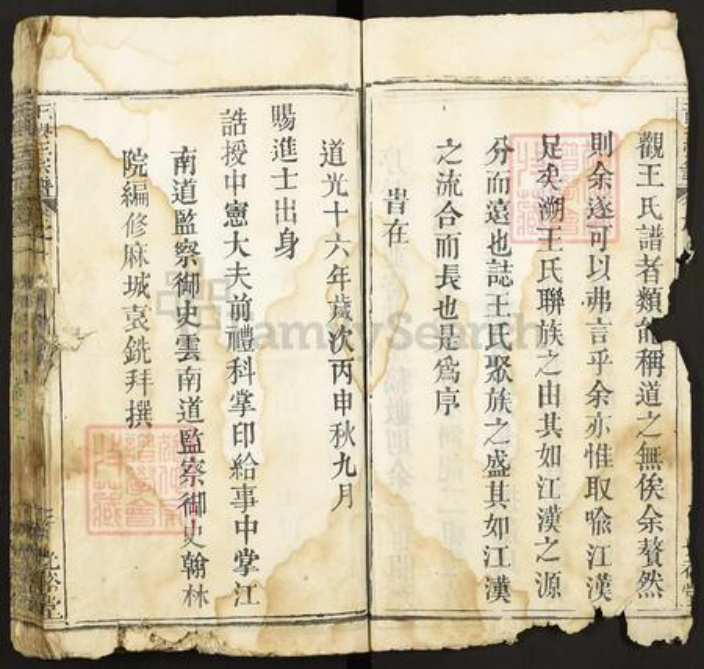 觀王氏譜者類能稱道之無俟余贅然
則余遂可以弗言乎余亦惟取喩江漢
足矣溯王氏聯族之由其如江漢之源
分而遠也誌王氏聚族之盛其如江漢
之流合而長也是爲序
旹在
道光十六年歲次丙申秋九月
賜進士出身
誥授中憲大夫前禮科掌印給事中掌江
南道監察御史雲南道監察御史翰林
院編修麻城袁銑拜撰
FamilySearch